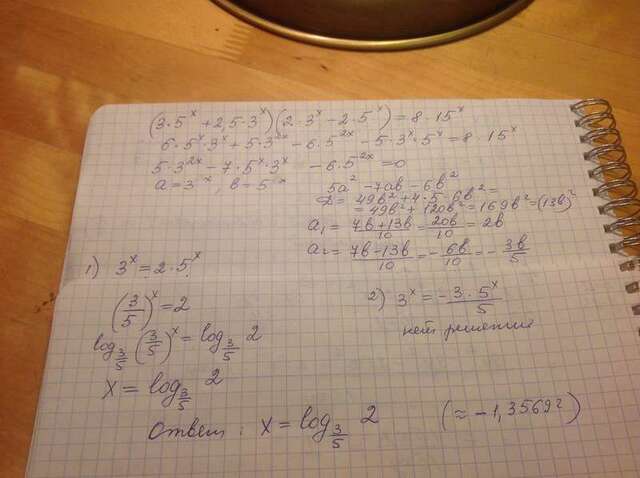 (3·5^x + 2,5·3^x)(2·3^x − 2·5^x) = 8·15^x
6·5^x·3^x + 5·3^2x − 6·5^2x − 5·3^x·5^x = 8·15^x
5·3^2x − 7·5^x·3^x − 6·5^2x = 0
a = 3^x, b = 5^x
5a^2 − 7ab − 6b^2
D = 49b^2 + 4·5·6b^2 =
= 49b^2 + 120b^2 = 169b^2 = (13b)^2
a₁ = (7b+13b)/10 = 20b/10 = 2b
a₂ = (7b−13b)/10 = −6b/10 = −3b/5
1) 3^x = 2·5^x
(3/5)^x = 2
log_3/5 (3/5)^x = log_3/5 2
x = log_3/5 2
2) 3^x = −3·5^x/5
нет решения
Ответ: x = log_3/5 2 (≈ −1,35692)